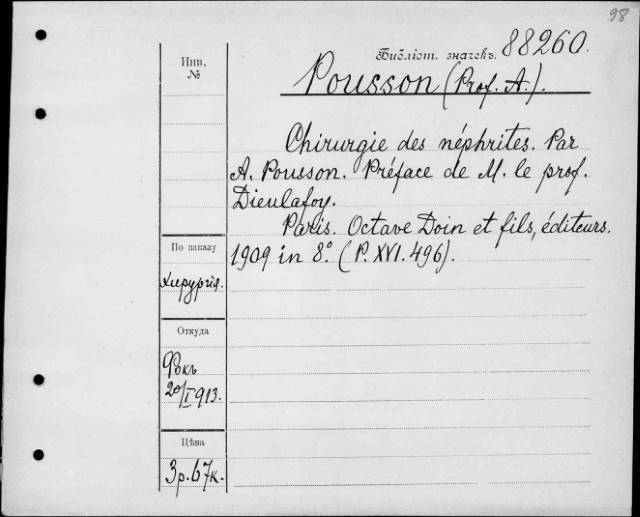 98
Библіот. значекъ. 88260.
Инв.
№
Pousson (Prof. A.).
Chirurgie des néphrites. Par
A. Pousson. Préface de M. le prof.
Dieulafoy.
Paris. Octave Doin et fils, éditeurs.
1909 in 8.° (P. XVI. 496).
По заказу
Хирургія.
Откуда
20/I 913.
Цѣна
3р. 67к.